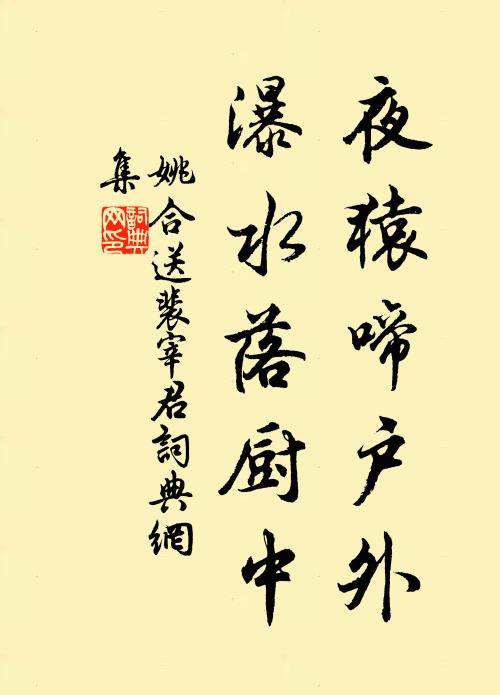 夜猿啼户外
瀑水落厨中
姚合送裴宰君詞典網
集
詞典
网印